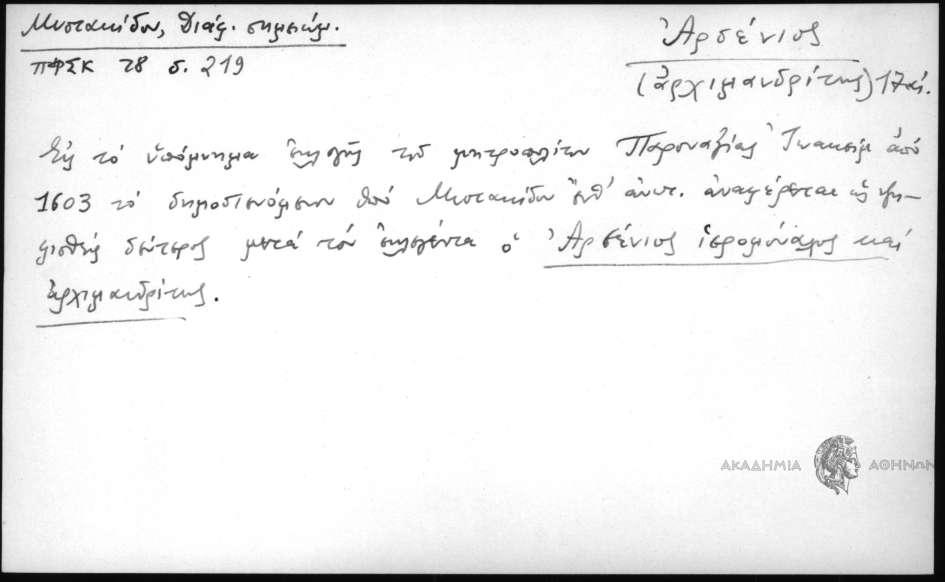 Μυστακίδου, Διάφ. σημειώμ.
ΠΦΣΚ 28 σ. 219
Ἀρσένιος
(ἀρχιμανδρίτης) 17 αἰ.
Εἰς τό ὑπόμνημα ἐκλογῆς τοῦ μητροπολίτου Παροναξίας Ἰωακείμ ἀπό
1603 τό δημοσιευόμενον ὑπό Μυστακίδου ἔνθ' ἀνωτ. ἀναφέρεται ὡς ψη-
φισθείς δεύτερος μετά τόν ἐκλεγέντα ὁ Ἀρσένιος ἱερομόναχος καί
ἀρχιμανδρίτης.
ΑΚΑΔΗΜΙΑ ΑΘΗΝΩΝ